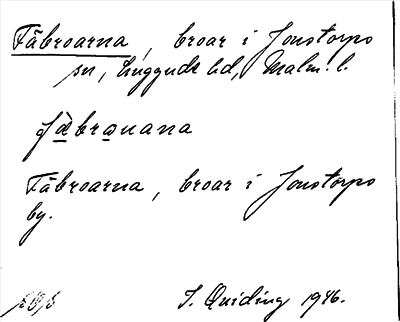 Fäbroarna, broar i Jonstorps
sn, Luggude hd, Malm. l.
fæbrouana
Fäbroarna, broar i Jonstorps
by.
S. Quiding 1946.